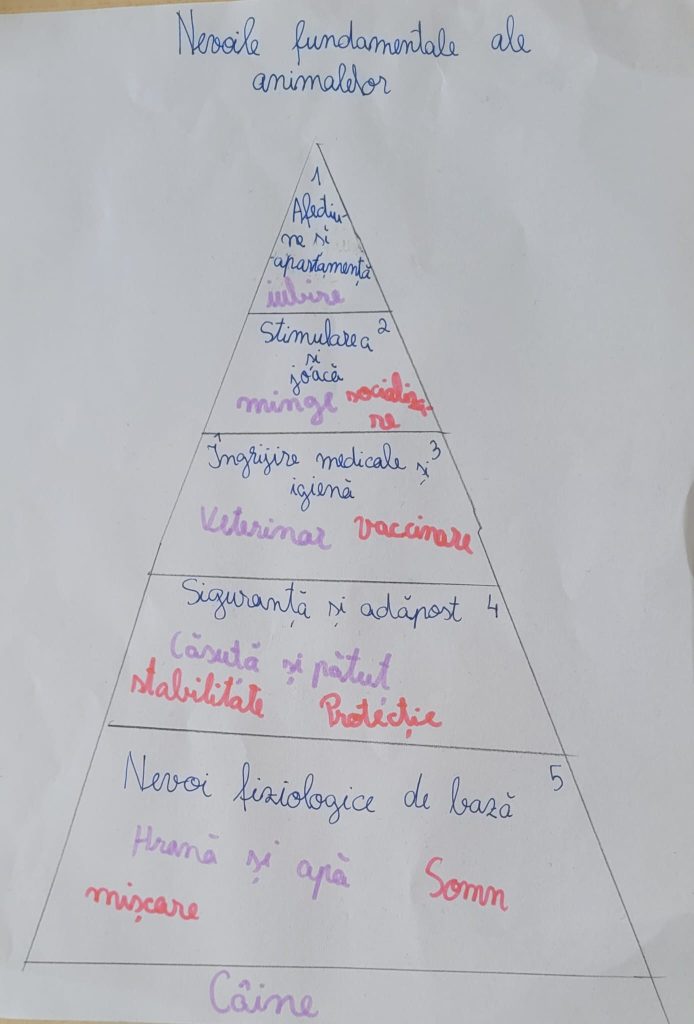 Nevoile fundamentale ale
animalelor
1
Afecțiu-
ne si
apartamență
iubire
Stimularea 2
si
joacă
minge socializa-
re
Îngrijire medicale și 3
igienă
Veterinar vaccinare
Siguranță și adăpost 4
Căsuță și pătuț
stabilitate Protecție
Nevoi fiziologice de bază 5
Hrană și apă Somn
mișcare
Câine